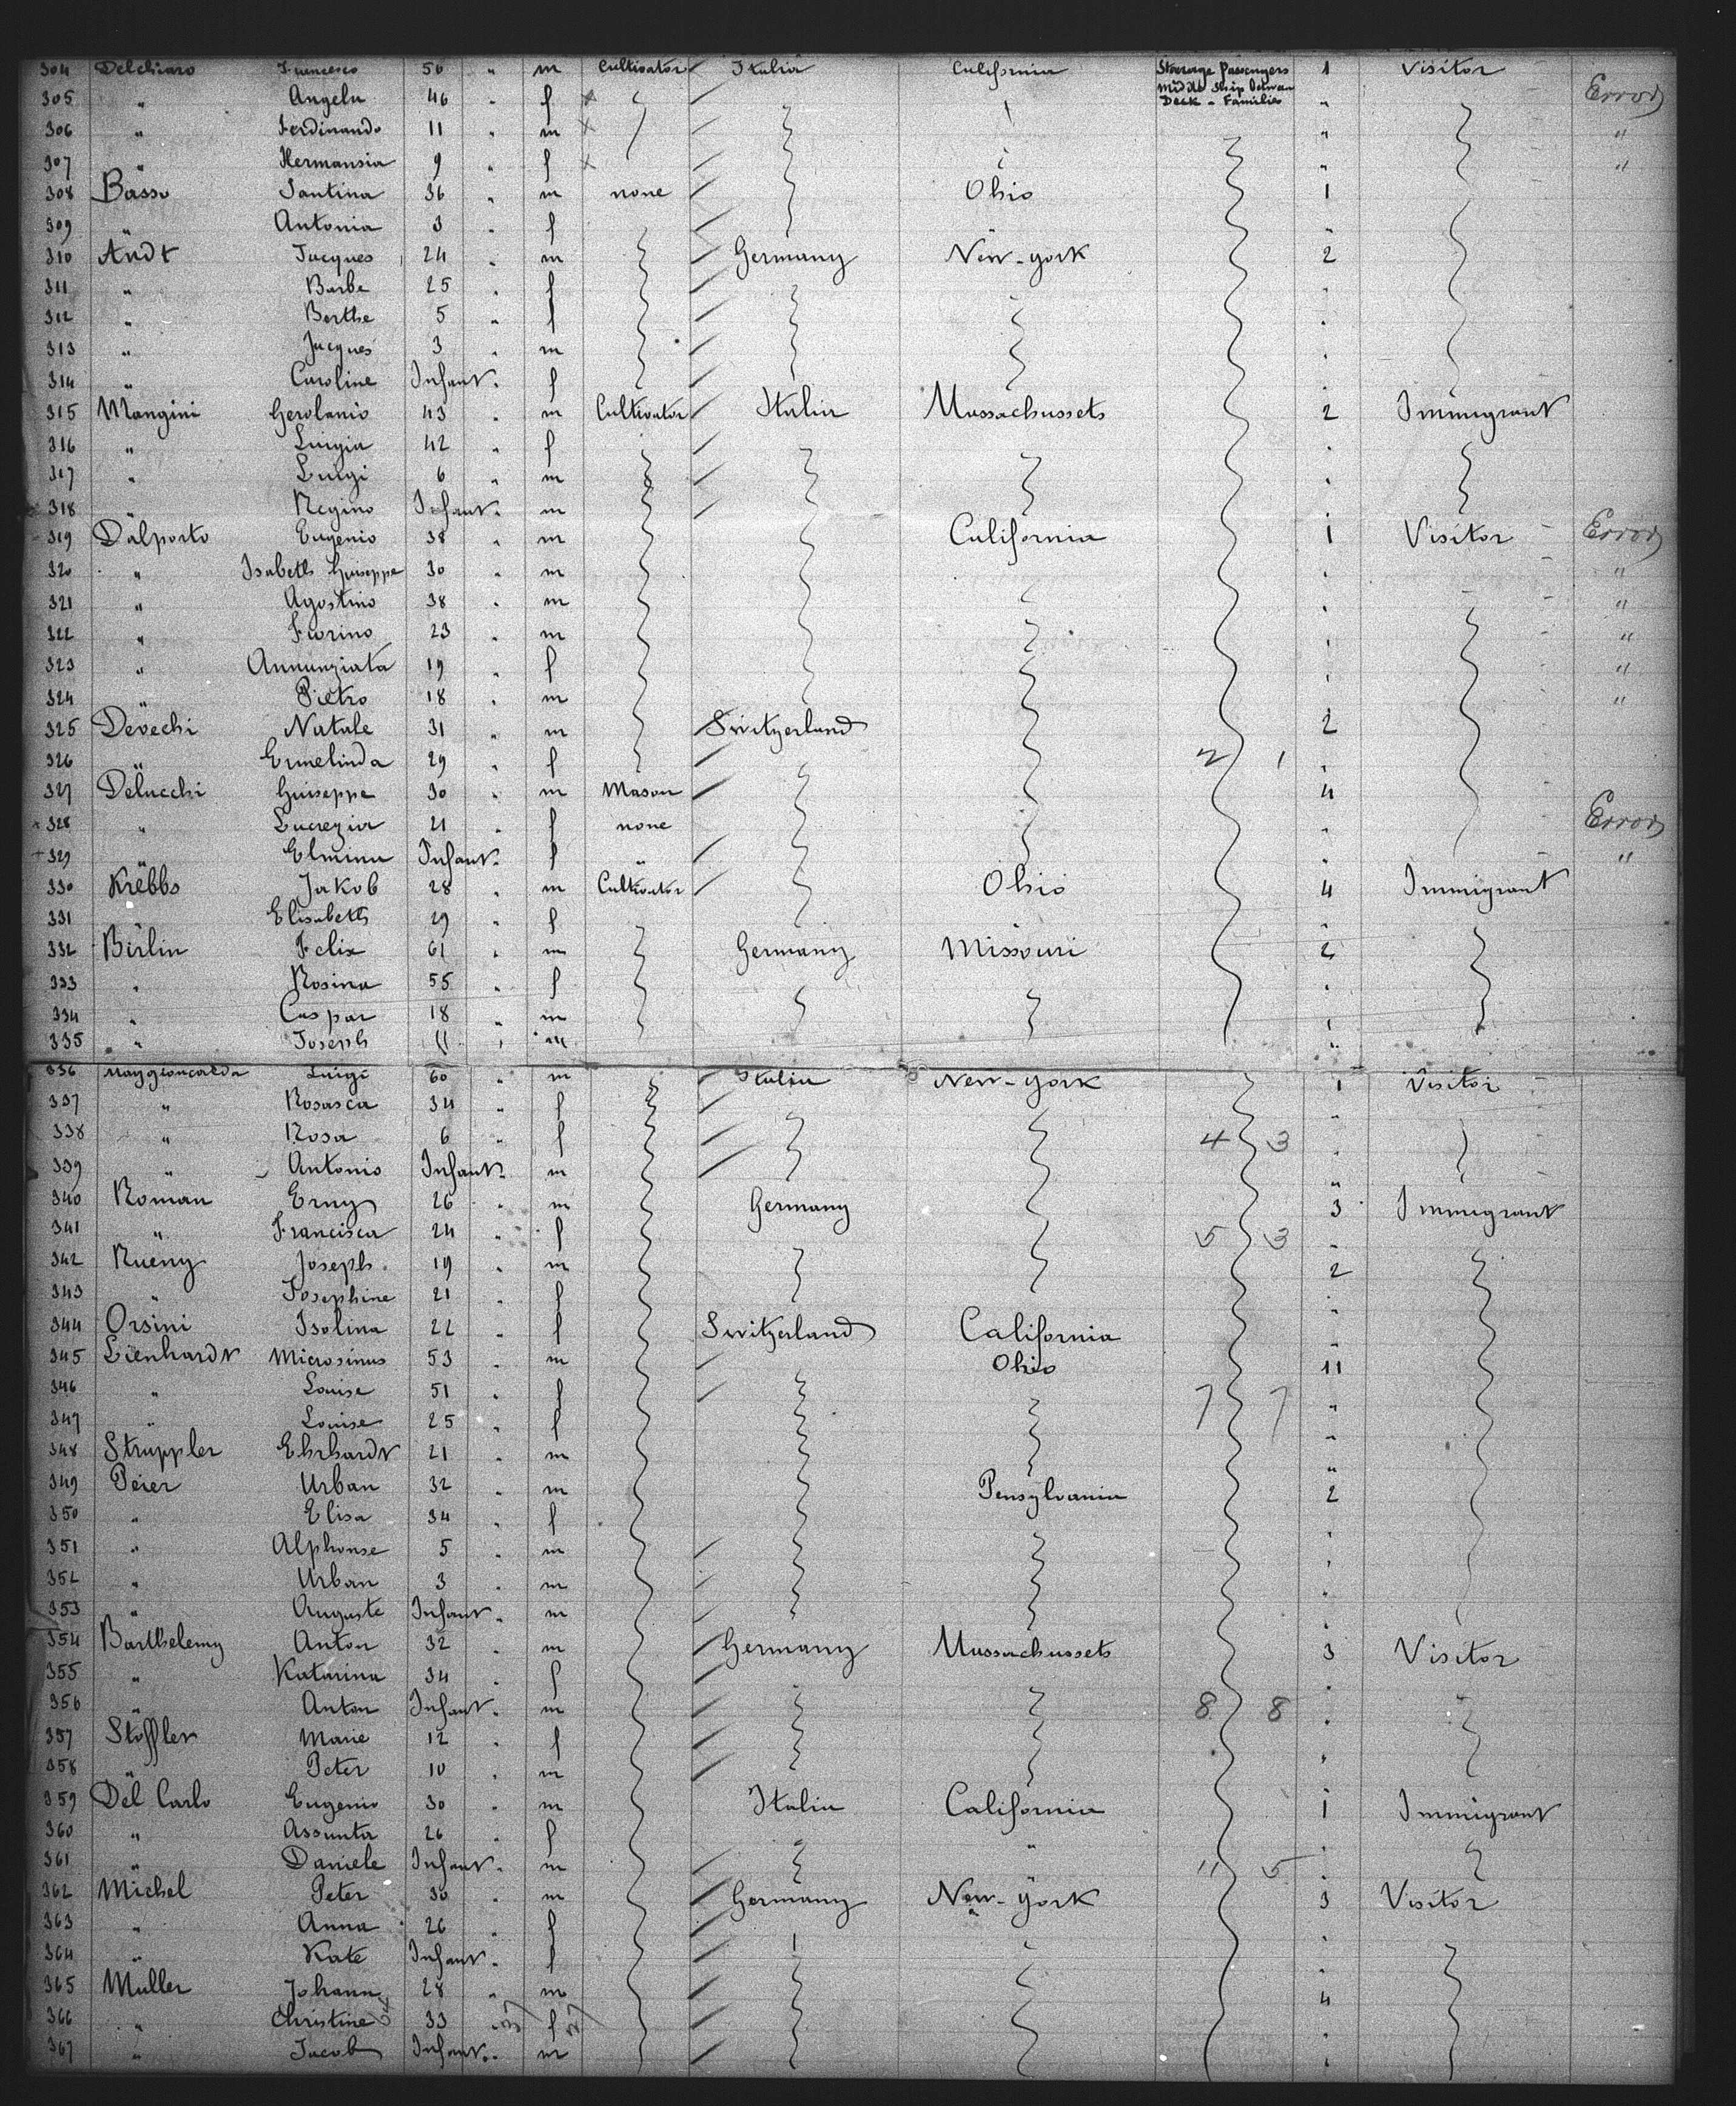 304 Delchiaro Francesco 50 " m Cultivator Italia California Steerage Passengers 1 Visitor
Middle Ship Between
Deck - Families
305 " Angela 46 " f " Error
306 " Ferdinando 11 " m " "
307 " Hermansia 9 " f " "
308 Basso Santina 36 " m none Ohio 1
309 " Antonia 3 " f "
310 Andt Jacques 24 " m Germany New-york 2
311 " Barbe 25 " f "
312 " Berthe 5 " f "
313 " Jacques 3 " m "
314 " Caroline Infant " f "
315 Mangini Gerolanio 43 " m Cultivator Italia Massachussets 2 Immigrant
316 " Luigia 42 " f "
317 " Luigi 6 " m "
318 " Regino Infant " m "
319 Dalporto Eugenio 38 " m California 1 Visitor Error
320 " Isabeth Guiseppe 30 " m " "
321 " Agostino 38 " m " "
322 " Fiorino 23 " m " "
323 " Annunziata 19 " f " "
324 " Pietro 18 " m " "
325 Devechi Natale 31 " m Switzerland 2
326 " Ermelinda 29 " f 2 1 "
327 Delucchi Guiseppe 30 " m Mason 4
328 " Lucrezia 21 " f none " Error
329 " Elmina Infant " f " " "
330 Krebbs Jakob 28 " m Cultivator Ohio 4 Immigrant
331 " Elisabeth 29 " f "
332 Birlin Felix 61 " m Germany Missouri 2
333 " Rosina 55 " f "
334 " Caspar 18 " m "
335 " Joseph 11 " m "
336 Luigi 60 " m Italia New-york 1 Visitor
337 " Rosasca 34 " f "
338 " Rosa 6 " f 4 3 "
339 " Antonio Infant " m "
340 Roman Erny 26 " m Germany 3 Immigrant
341 " Francisca 24 " f 5 3 "
342 Rueny Joseph 19 " m 2
343 " Josephine 21 " f "
344 Orsini Isolina 22 " f Switzerland California "
345 Lienhardt Microsinus 53 " m Ohio 11
346 " Louise 51 " f 7 7 "
347 " Louise 25 " f "
348 Struppler Ehrhardt 21 " m "
349 Peier Urban 32 " m Pensylvania 2
350 " Elisa 34 " f "
351 " Alphonse 5 " m "
352 " Urban 3 " m "
353 " Auguste Infant " m "
354 Barthelemy Anton 32 " m Germany Massachussets 3 Visitor
355 " Katarina 34 " f "
356 " Anton Infant " m 8 8 "
357 Stöffler Marie 12 " f
358 " Peter 10 " m "
359 Del Carlo Eugenio 30 " m Italia California 1 Immigrant
360 " Assunta 26 " f " "
361 " Daniele Infant " m 11 5 "
362 Michel Peter 30 " m Germany New-york 3 Visitor
363 " Anna 26 " f "
364 " Kate Infant " f "
365 Müller Johann 28 " m 4
366 " Christine 33 " f "
367 " Jacob Infant " m "